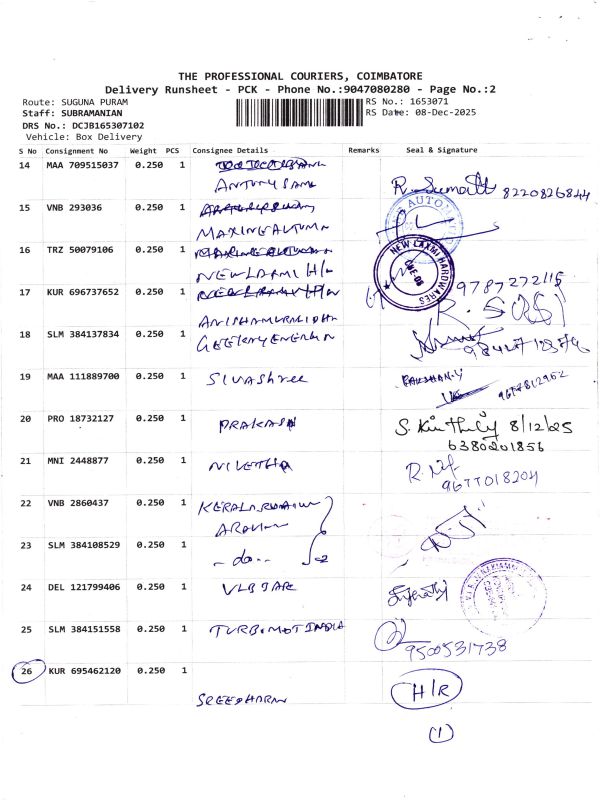 THE PROFESSIONAL COURIERS, COIMBATORE
Delivery Runsheet - PCK - Phone No.:9047080280 - Page No.:2
Route: SUGUNA PURAM
RS No.: 1653071
Staff: SUBRAMANIAN
RS Date: 08-Dec-2025
DRS No.: DCJB165307102
Vehicle: Box Delivery
S No Consignment No Weight PCS Consignee Details Remarks Seal & Signature
14 MAA 709515037 0.250 1
ANTONY SAMI R. 8220826844
15 VNB 293036 0.250 1
AUTO
16 TRZ 50079106 0.250 1
NEW LAXMI H/W NEW LAXMI HARDWARES CBE-08
17 KUR 696737652 0.250 1 9787272115
R. SASI
18 SLM 384137834 0.250 1 GEEKAY ENERGY
19 MAA 111889700 0.250 1 SIVASHREE
9677812962
20 PRO 18732127 0.250 1 PRAKASH S. 8/12/25
6380201856
21 MNI 2448877 0.250 1 NIVETHA R.
9677018204
22 VNB 2860437 0.250 1 KERALA
23 SLM 384108529 0.250 1 - do - 2
24 DEL 121799406 0.250 1 VLB JAK
25 SLM 384151558 0.250 1 TURBOMOT INDIA
9500531738
26 KUR 695462120 0.250 1
SREEDHARAN H/R
(1)